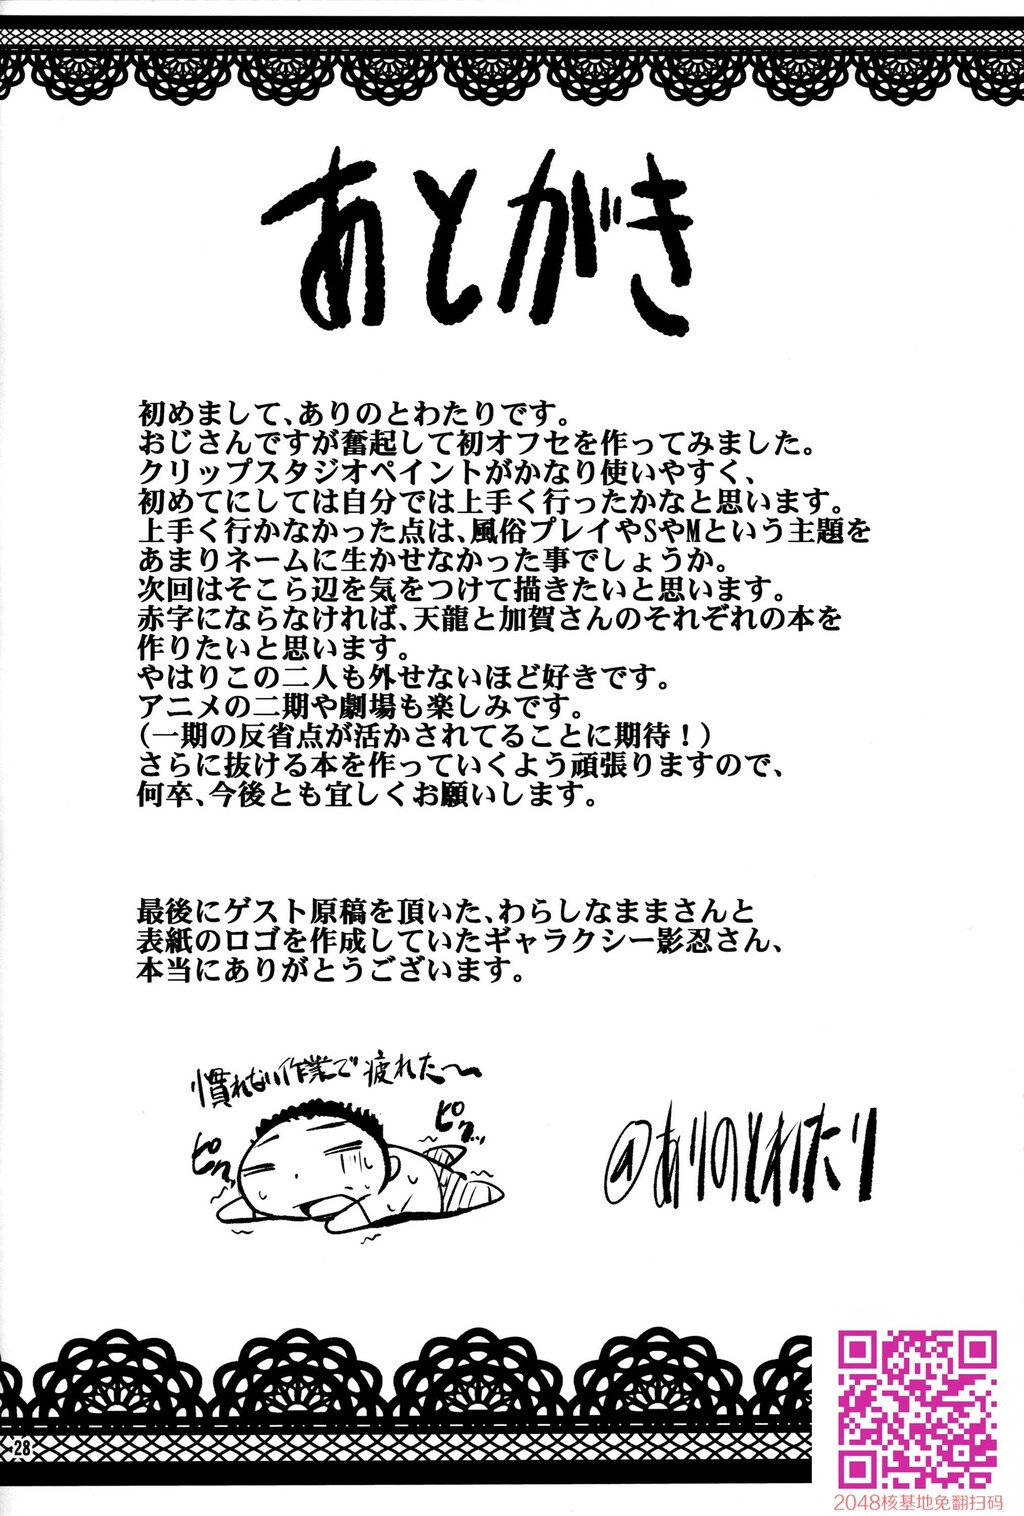 あとがき
初めまして、ありのとわたりです。
おじさんですが奮起して初オフセを作ってみました。
クリップスタジオペイントがかなり使いやすく、
初めてにしては自分では上手く行ったかなと思います。
上手く行かなかった点は、風俗プレイやSやMという主題を
あまりネームに生かせなかった事でしょうか。
次回はそこら辺を気をつけて描きたいと思います。
赤字にならなければ、天龍と加賀さんのそれぞれの本を
作りたいと思います。
やはりこの二人も外せないほど好きです。
アニメの二期や劇場も楽しみです。
（一期の反省点が活かされてることに期待！）
さらに抜ける本を作っていくよう頑張りますので、
何卒、今後とも宜しくお願いします。
最後にゲスト原稿を頂いた、わらしなままさんと
表紙のロゴを作成していたギャラクシー影忍さん、
本当にありがとうございます。
慣れない作業で疲れた〜
ピクッ
ピクッ
@ありのとわたり
28
2048核基地免翻扫码